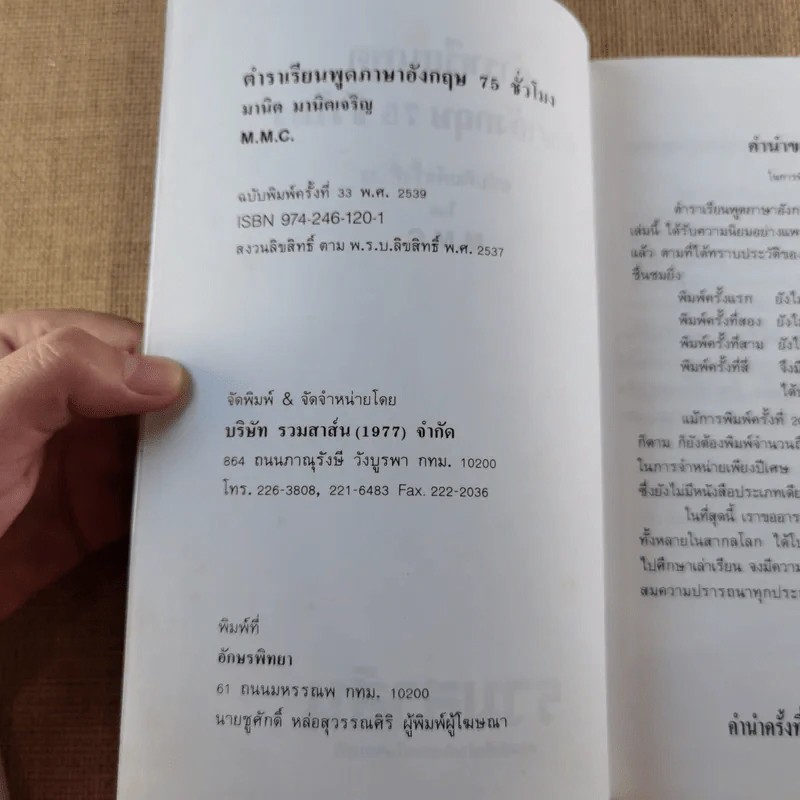 ตำราเรียนพูดภาษาอังกฤษ 75 ชั่วโมง
มานิต มานิตเจริญ
M.M.C.
ฉบับพิมพ์ครั้งที่ 33 พ.ศ. 2539
ISBN 974-246-120-1
สงวนลิขสิทธิ์ ตาม พ.ร.บ.ลิขสิทธิ์ พ.ศ. 2537
จัดพิมพ์ & จัดจำหน่ายโดย
บริษัท รวมสาส์น (1977) จำกัด
864 ถนนภาณุรังษี วังบูรพา กทม. 10200
โทร. 226-3808, 221-6483 Fax. 222-2036
พิมพ์ที่
อักษรพิทยา
61 ถนนมหรรณพ กทม. 10200
นายชูศักดิ์ หล่อสุวรรณศิริ ผู้พิมพ์ผู้โฆษณา
คำนำ
ในการ
ตำราเรียนพูดภาษา
เล่มนี้ ได้รับความนิยมอย่าง
แล้ว ตามที่ได้ทราบประวัติของ
ชื่นชมยิ่ง
พิมพ์ครั้งแรก
พิมพ์ครั้งที่สอง
พิมพ์ครั้งที่สาม
พิมพ์ครั้งที่สี่
แม้การพิมพ์ครั้งที่
ก็ตาม ก็ยังต้องพิมพ์จำนวน
ในการจำหน่ายเพียงปีเศษ
ซึ่งยังไม่มีหนังสือประเภท
ในที่สุดนี้ เราขอ
ทั้งหลายในสากลโลก
ไปศึกษาเล่าเรียน จงมีความ
สมความปรารถนาทุก
คำนำครั้งที่